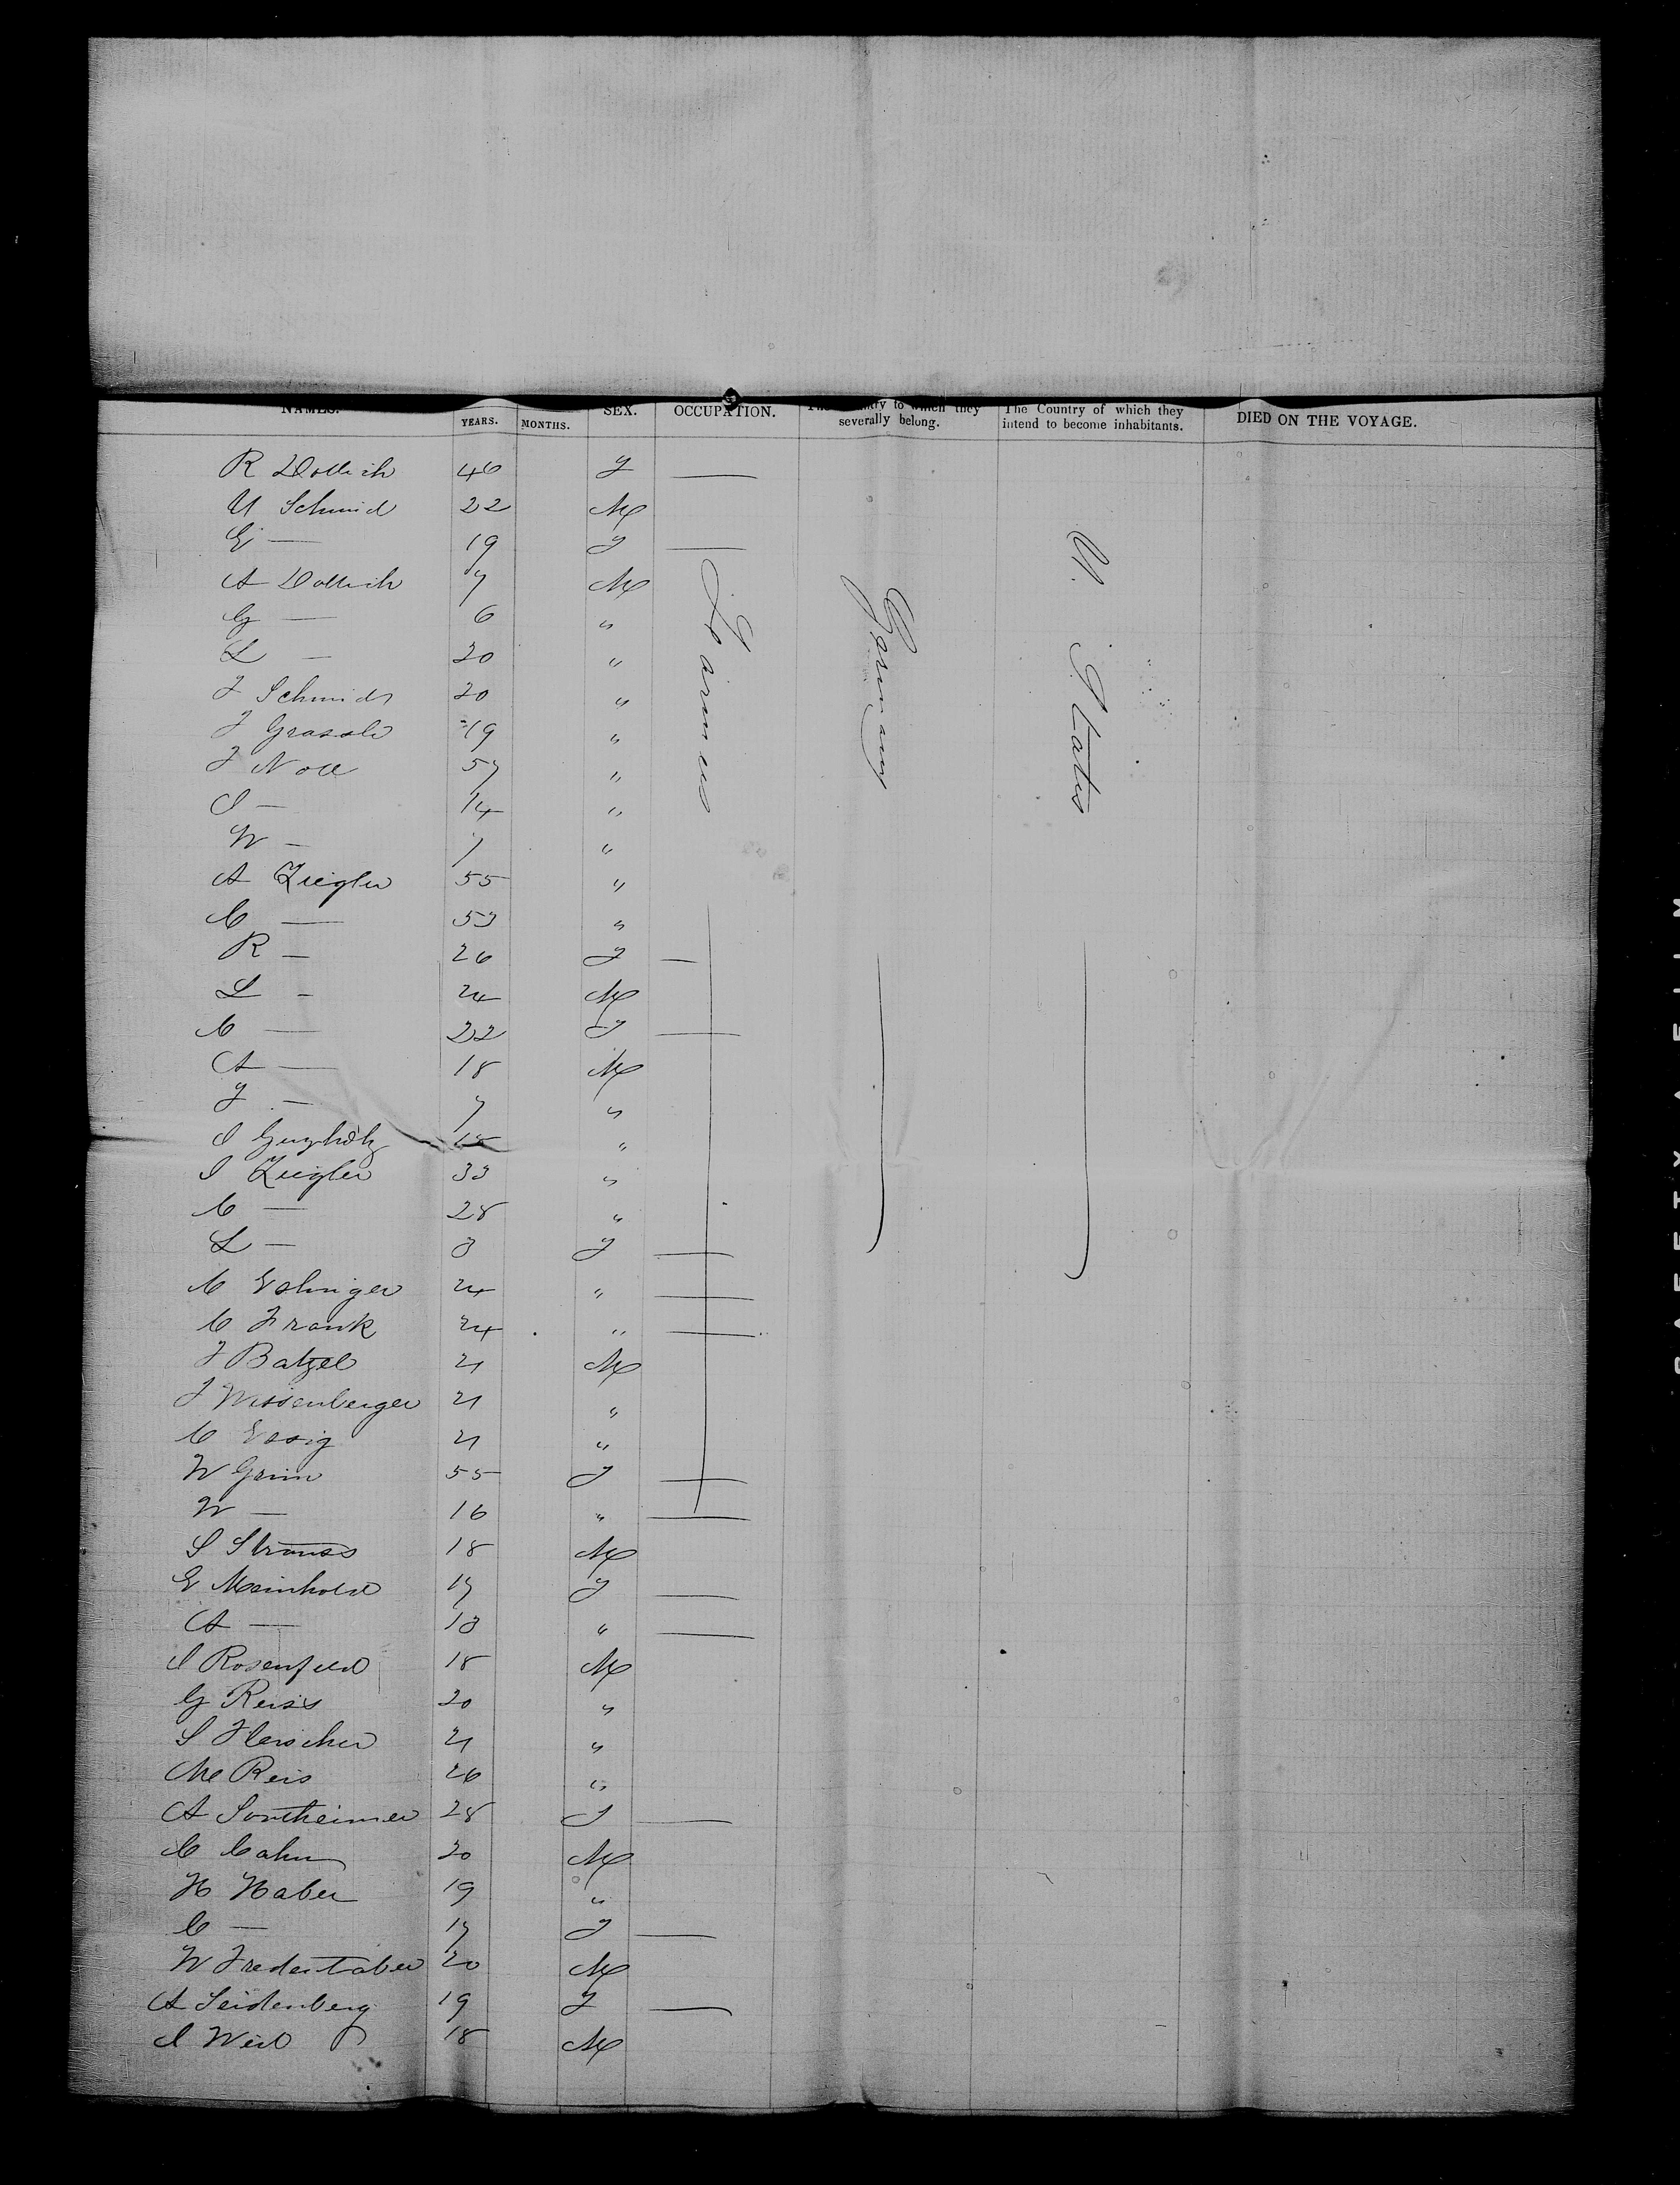 NAMES. YEARS. MONTHS. SEX. OCCUPATION. The Country to which they severally belong. The Country of which they intend to become inhabitants. DIED ON THE VOYAGE.
R Dollich 46 F —
U Schmid 22 M
G — 19 F —
A Dollich 7 M
G — 6 "
L — 20 "
F Schmidt 20 "
F Grassle 19 "
F Noll 57 "
J — 14 "
W — 7 "
A Ziegler 55 "
C — 53 "
R — 26 F —
L — 24 M
C — 22 F —
A — 18 M
F — 7 "
J 18 "
J Ziegler 33 "
C — 28 "
L — 3 F —
C Eslinger 24 " —
C Frank 24 " —
F Batzel 21 M
J Weissenberger 21 "
C Essig 21 "
W Grim 55 F —
W — 16 " —
S Strauss 18 M
E Meinhold 17 F —
A — 13 " —
J Rosenfeld 18 M
G Reiss 20 "
S Fleischer 21 "
M Reis 26 "
A Sontheimer 28 F —
C Cahn 20 M
H Haber 19 "
C — 17 F —
W 20 M
A Seidenberg 19 F —
J Weil 18 M
Farmers
Germany
U. States
SAFETY FILM